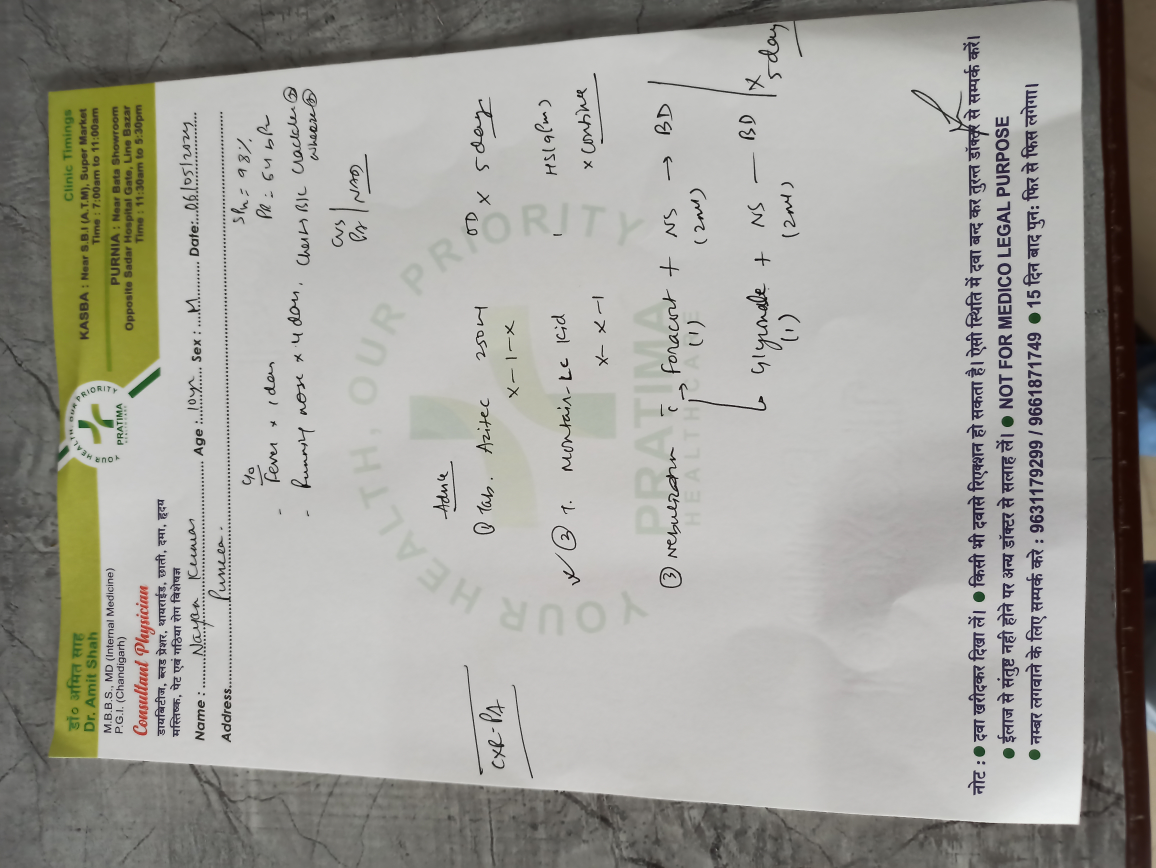 डॉ० अमित साह
Dr. Amit Shah
M.B.B.S., MD (Internal Medicine)
P.G.I. (Chandigarh)
Consultant Physician
डायबिटीज, ब्लड प्रेशर, थायराईड, छाती, दमा, हृदय
मस्तिष्क, पेट एवं गठिया रोग विशेषज्ञ
YOUR HEALTH, OUR PRIORITY
PRATIMA
Clinic Timings
KASBA : Near S.B.I (A.T.M), Super Market
Time : 7:00am to 11:00am
PURNIA : Near Bata Showroom
Opposite Sadar Hospital Gate, Line Bazar
Time : 11:30am to 5:30pm
Name : Nayan Kumar Age : 10yr Sex : M Date: 06/05/2024
Address
SPo2 = 98%
PR = 64 bpm
c/o
- Fever x 1 day
- Runny nose x 4 days, Chest B/L Crackles +
wheeze +
CVS
PA | NAD
Advice
① Tab. Azitec 250mg OD x 5 day
x-1-x
② T. Montair-LC Kid 1 HS (9pm)
x-x-1 x continue
CXR-PA
③ Nebulization c̄ → Foracort + NS → BD
(1) (2ml)
↳ Glycunate + NS — BD
(1) (2ml)
x 5 day
YOUR HEALTH, OUR PRIORITY
PRATIMA
HEALTHCARE
नोट : ● दवा खरीदकर दिखा लें। ● किसी भी दवासे रिएक्शन हो सकता है। ऐसी स्थिति में दवा बन्द कर तुरन्त डॉक्टर से सम्पर्क करें।
● ईलाज से संतुष्ट नही होने पर अन्य डॉक्टर से सलाह लें। ● NOT FOR MEDICO LEGAL PURPOSE
● नम्बर लगवाने के लिए सम्पर्क करे : 9631179299 / 9661871749 ● 15 दिन बाद पुन: फिर से फिस लगेगा।